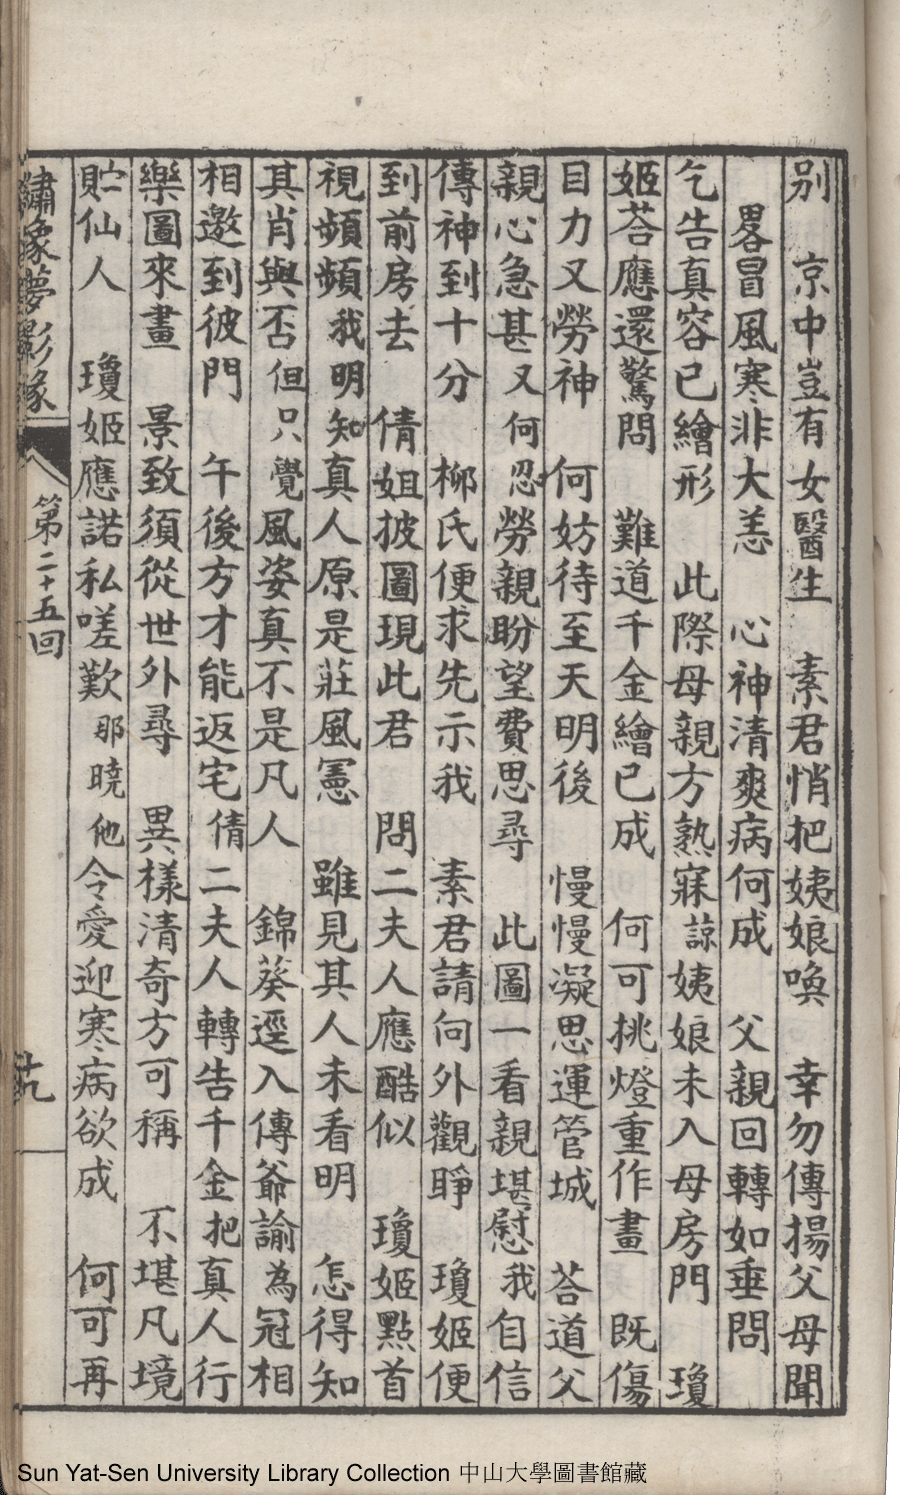 別　京中豈有女醫生　素君悄把姨娘喚　幸勿傳揚父母聞
畧冒風寒非大恙　心神清爽病何成　父親回轉如垂問
乞告真容已繪形　此際母親方熟寐諒姨娘未入母房門　瓊
姬荅應還驚問　難道千金繪已成　何可挑燈重作畫　既傷
目力又勞神　何妨待至天明後　慢慢凝思運管城　荅道父
親心急甚又何忍勞親盼望費思尋　此圖一看親堪慰我自信
傳神到十分　柳氏便求先示我　素君請向外觀睜　瓊姬便
到前房去　倩姐披圖現此君　問二夫人應酷似　瓊姬點首
視頻頻我明知真人原是莊風憲　雖見其人未看明　怎得知
其肖與否但只覺風姿真不是凡人　錦葵逕入傳爺諭為冠相
相邀到彼門　午後方才能返宅倩二夫人轉告千金把真人行
樂圖來畫　景致須從世外尋　異樣清奇方可稱　不堪凡境
貯仙人　瓊姬應諾私嗟歎那曉他令愛迎寒病欲成　何可再
繡像夢影緣　第二十五回　十九
Sun Yat-Sen University Library Collection 中山大學圖書館藏